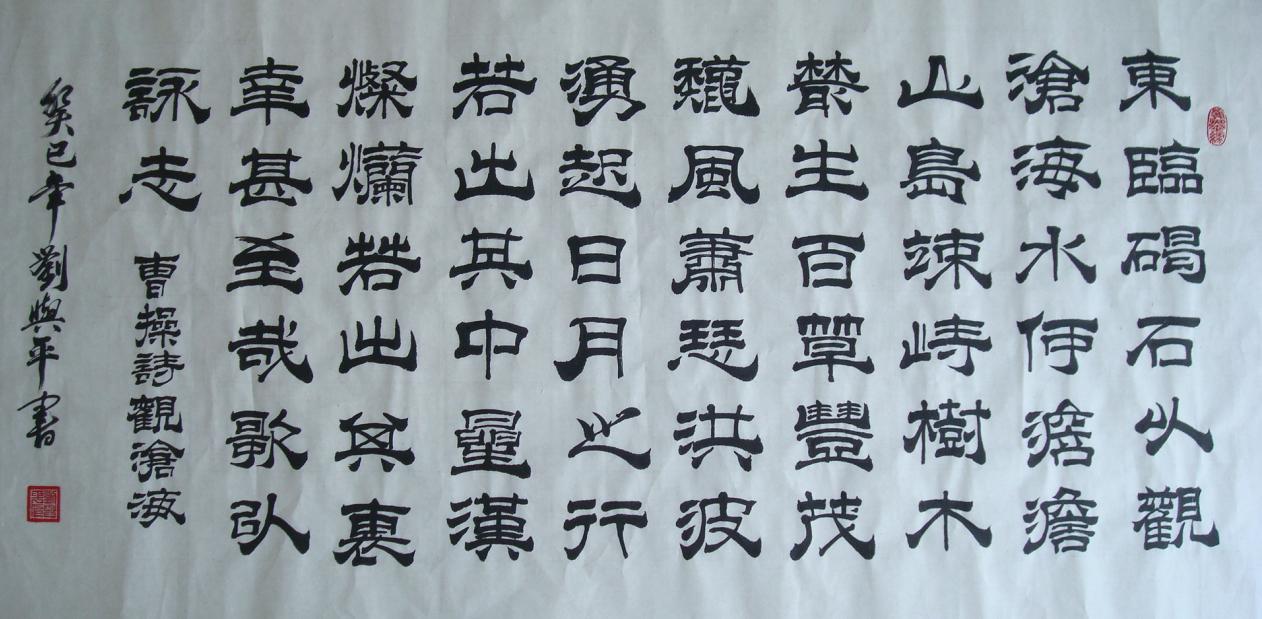 東臨碣石以觀
滄海水何澹澹
山島竦峙樹木
叢生百草豐茂
龝風蕭瑟洪波
湧起日月之行
若出其中曐漢
燦爛若出其裏
幸甚至哉歌以
詠志 曹操詩觀滄海
癸巳年劉與平書